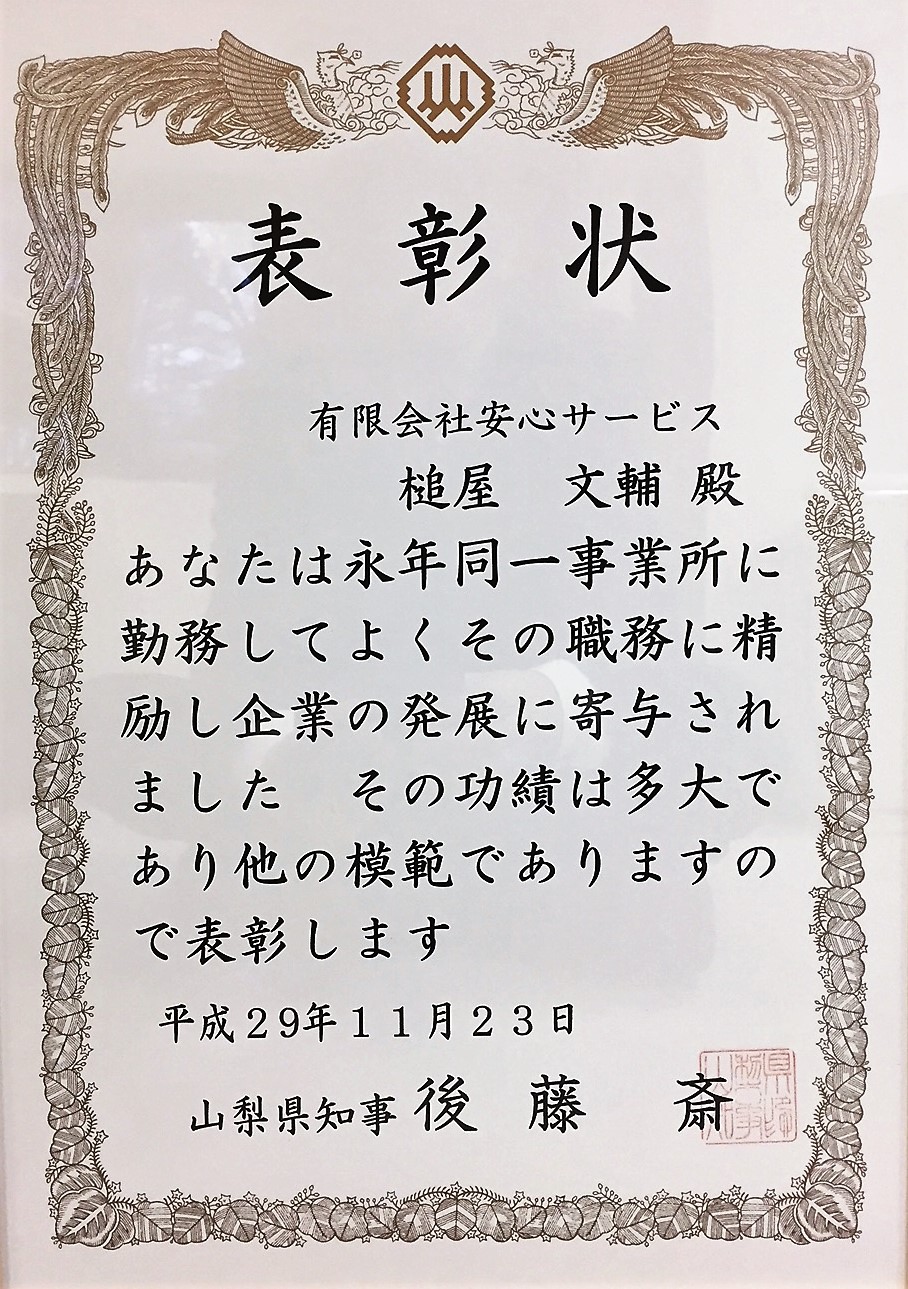 山
表彰状
有限会社安心サービス
槌屋　文輔 殿
あなたは永年同一事業所に
勤務してよくその職務に精
励し企業の発展に寄与され
ました　その功績は多大で
あり他の模範でありますの
で表彰します
平成２９年１１月２３日
山梨県知事 後藤　斎